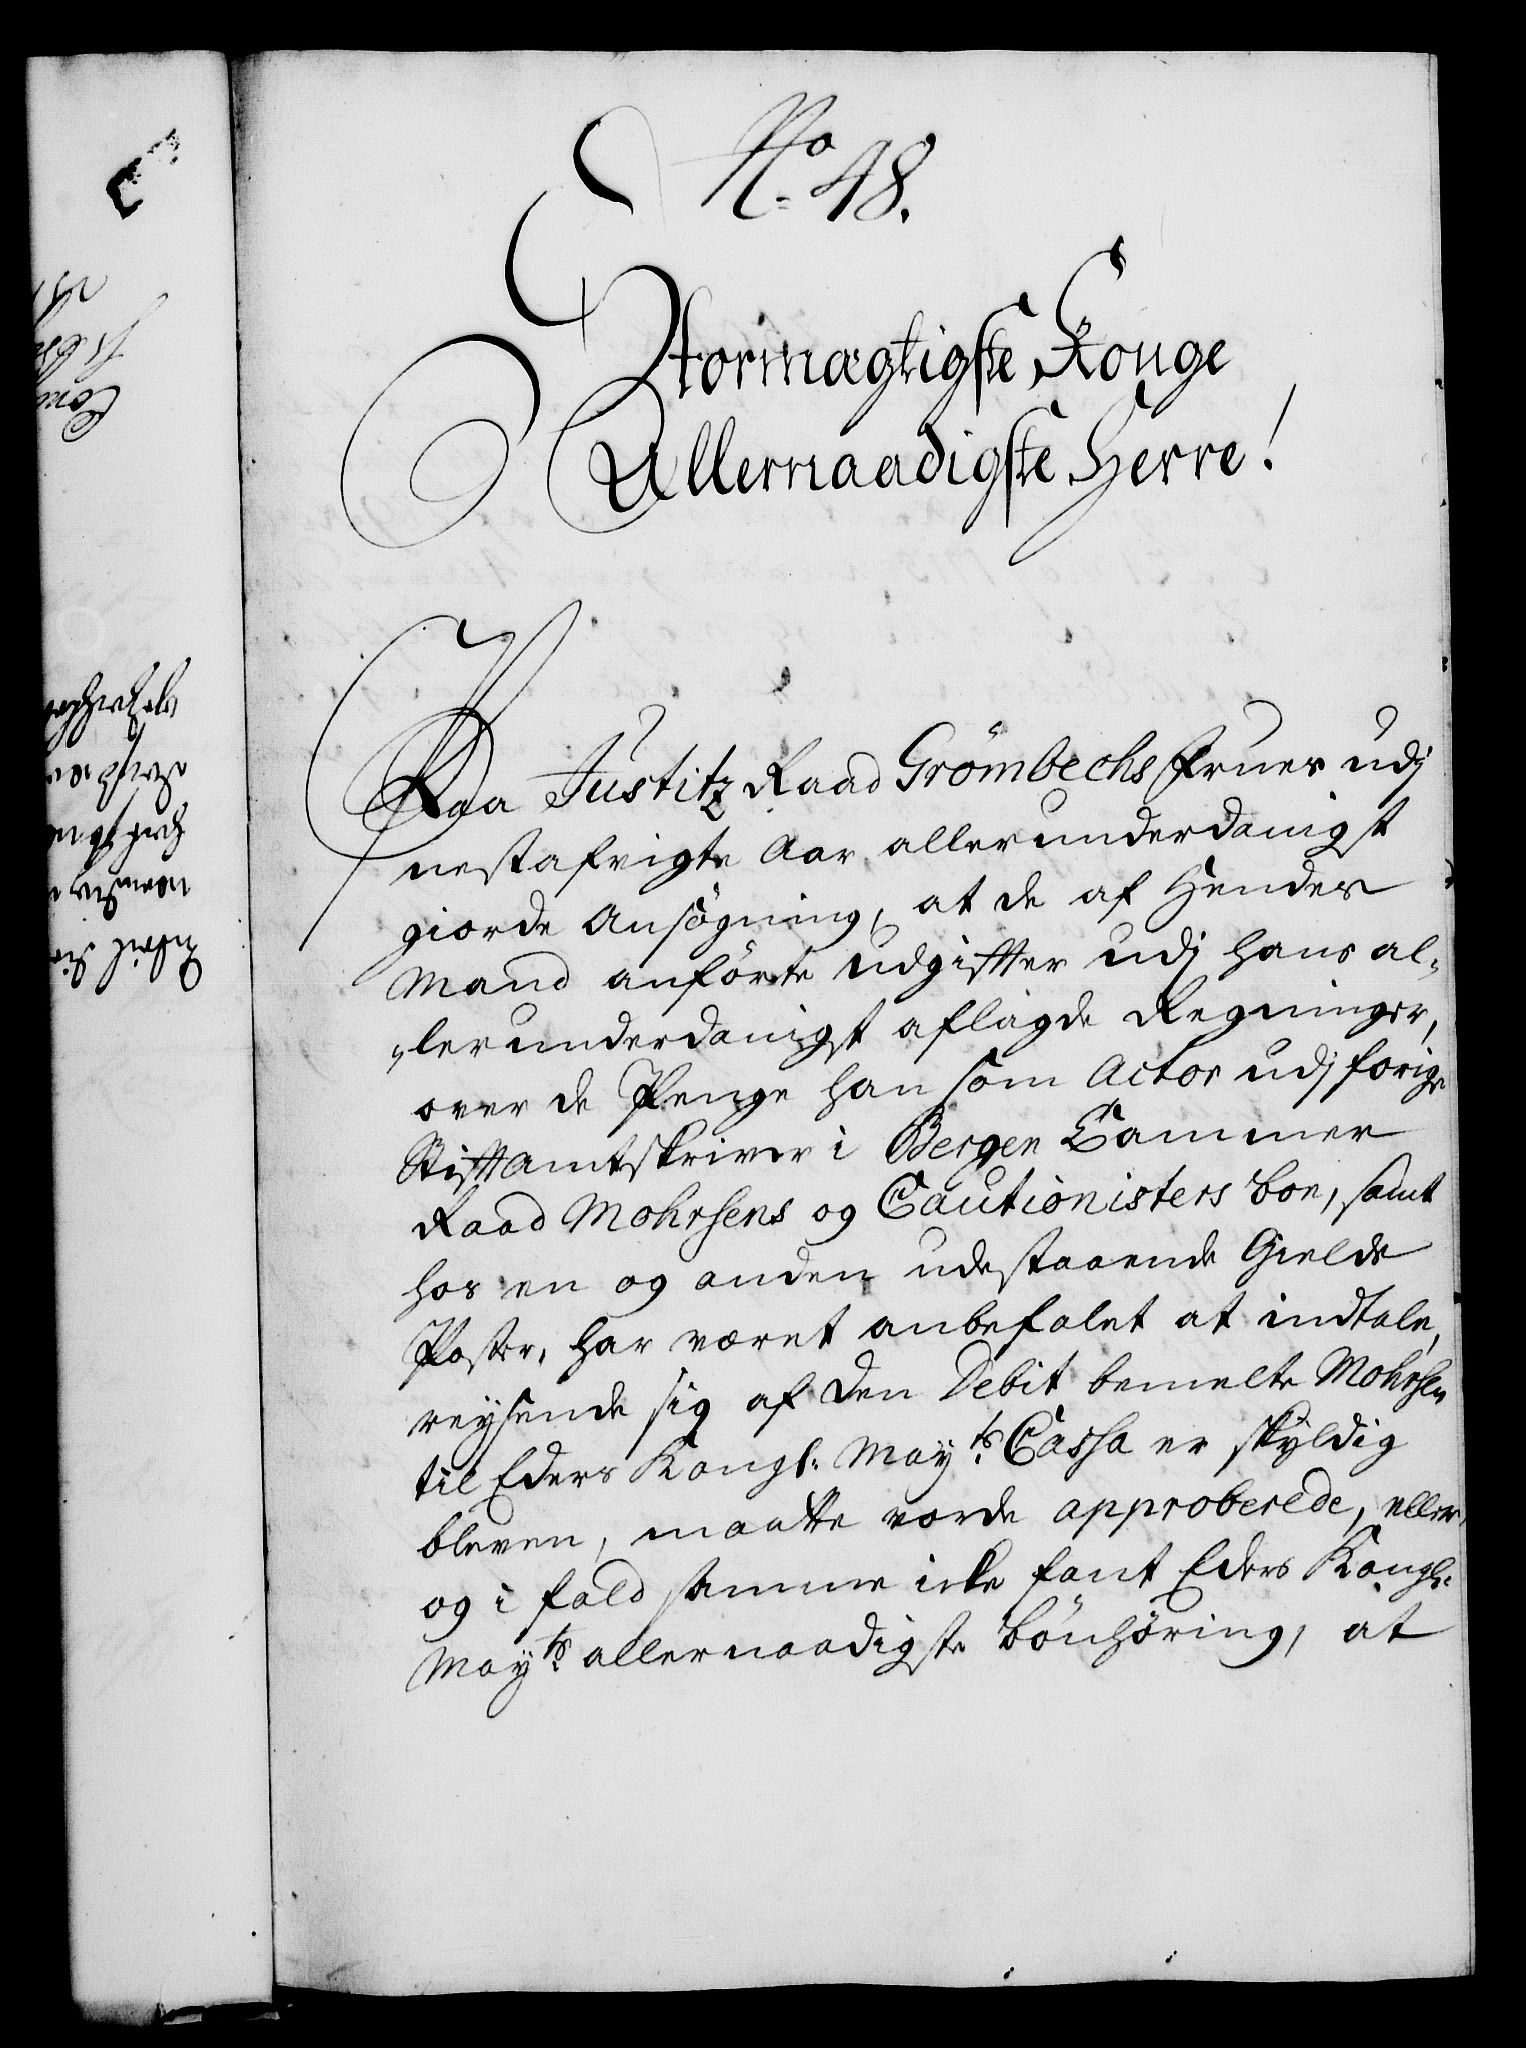 No. 48.
Stormægtigste Konge
Allernaadigste Herre!
Paa Justitz Raad Grømbechs Frues udj
nestafvigte Aar allerunderdanigst
giorde Ansøgning, at de af Hendes
Mand anførte udgifter udj hans al-
lerunderdanigst aflagde Regninger,
over de Penge han som Actor udj forige
Stiftamtskriver i Bergen Cammer
Raad Mohrsens og Cautionisters boe, samt
hos en og anden udestaaende Gields
Poster, har været anbefalet at indtale,
reysende sig af den Debit bemelte Mohrsen
til Eders Kongl: Mayts. Cassa er skyldig
bleven, maatte vorde approberede, eller,
og i fald samme icke fant Eders Kongl:
Mayts. allernaadigste bønhøring, at